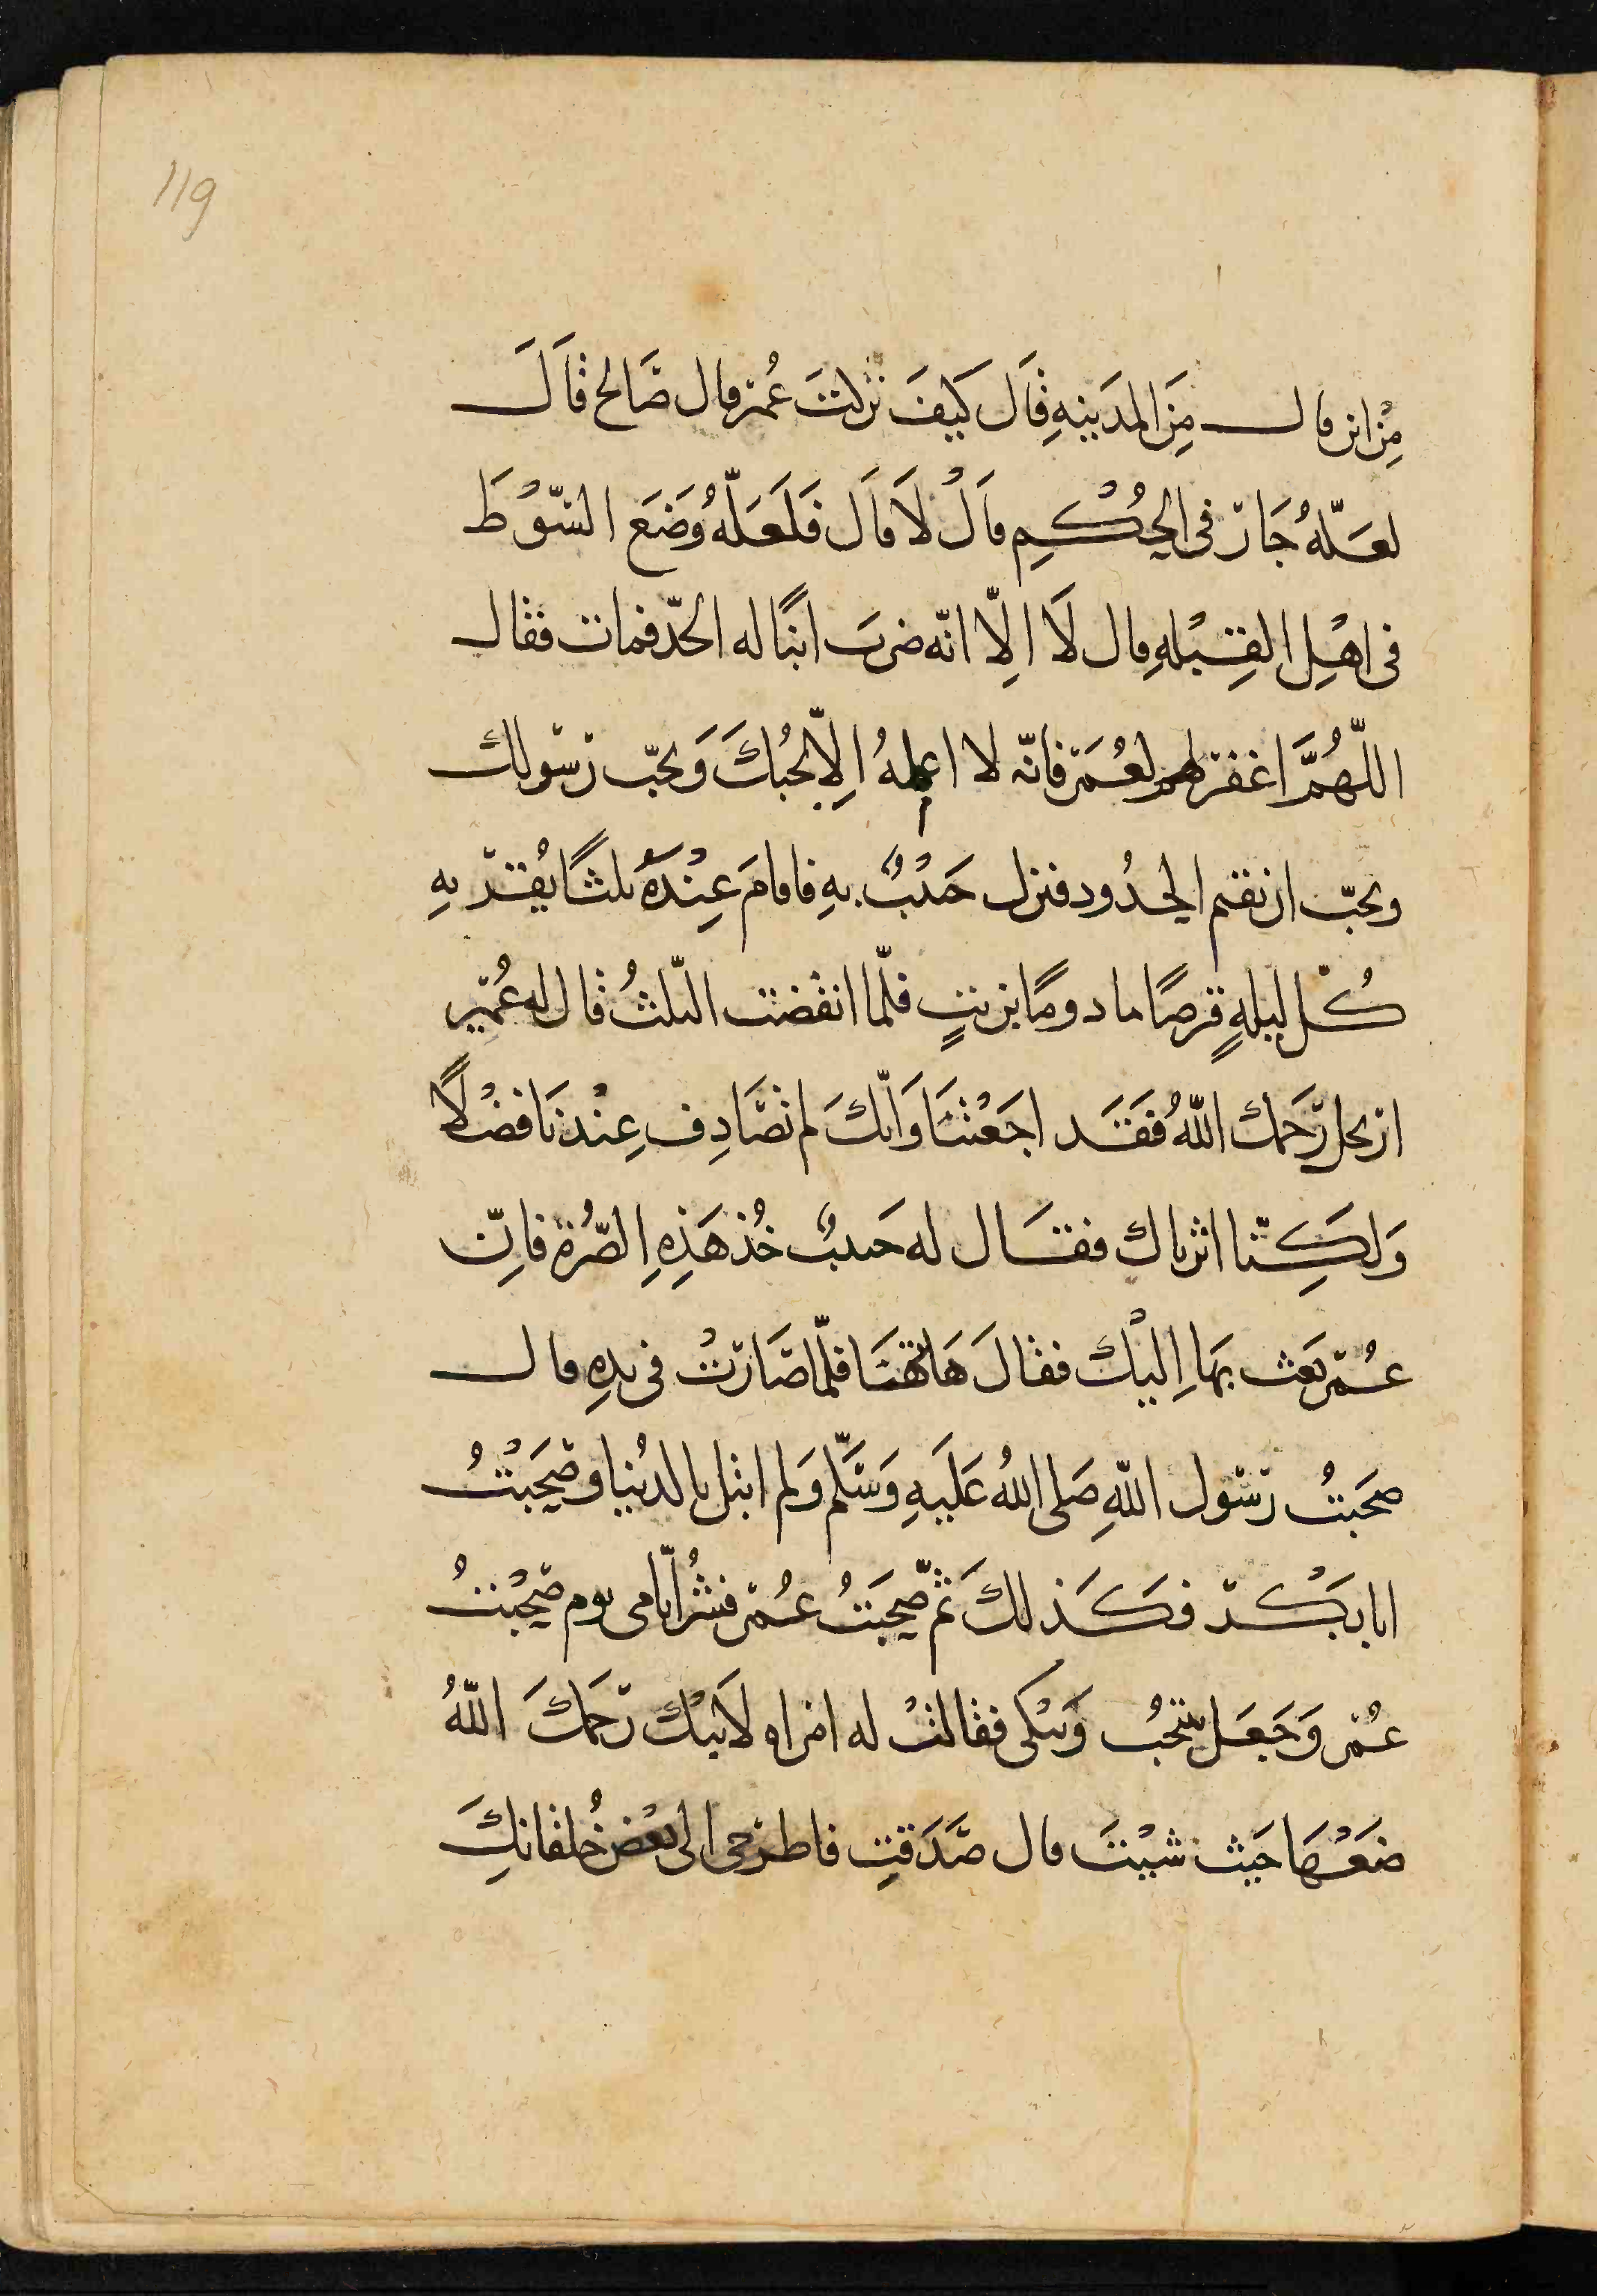 119
مِنْ اين قال مِنَ المدَينهِ قَال كَيفَ تركتَ عُمَر قال صَالح قَالَ
لعَلّهُ جَارَ فى الحُكْمِ قاَلْ لاَ قاَل فَلَعَلّهُ وَضَع السَّوْطَ
فى اهْلِ القِبْلهِ قال لَا اِلّا انّه ضربَ ابنًا له الحدّ فمات فقال
اللّهُمَّ اغفر لعُمَر فانّه لا اعلمهُ اِلّا يحُبكَ وَيحبّ رسولك
ويحبّ ان تقيم الحدُود فنزل حَبْيبٌ بهِ فاقامَ عِنْدَهُ ثلثًا يُقدّم بهِ
كُلّ ليلهٍ قرصًا مادومًا بزيتٍ فلمّا انقضت الثلثُ قال له عُمَير
ارحل رَحمك اللّهُ فَقَد اجَعْتنَا وَانّكَ لم تصَادِف عِنْدنَا فضْلًا
وَلكِنّا اثرناك فقَال له حَبيبٌ خُذ هَذِهِ الصُّرة فاِنّ
عُمَر بَعَث بهَا اِليْك فقالَ هَاتهَا فلمّا صَارَتْ فى يدهِ قال
صحَبتُ رَسول اللّهِ صَلى اللهُ عَلَيهِ وَسَّلم وَلم ابتل بالدُنيا وصَحِبْتُ
ابا بَكْر فكَذلكَ ثمّ صَحِبَتُ عُمَر فشرُّ ايّامى يوم صَحِبْتُ
عُمَر وَجَعَل ينتحبُ وَيبْكى فقالتْ له امراه لَا تبْك رَحمكَ اللّهُ
ضَعْهَا حَيث شيْتَ قال صَدَقتِ فاطرحى الى بعْض خُلقانكِ